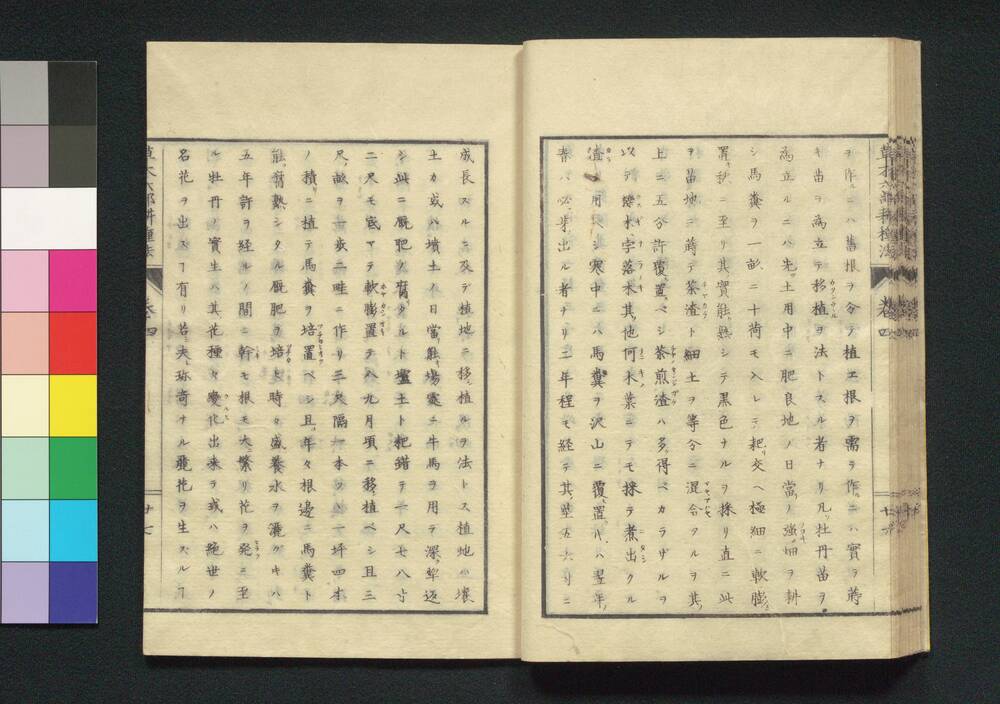 ヲ作ルニハ舊根ヲ分テ植エ根ヲ需ラ作ルニハ實ヲ蒔
キ苗ヲ為立テ移植ヲ法トスル者ナリ凡ソ牡丹苗ヲ
為立ルニハ先土用中ニ肥良地ノ日當ノ強畑ヲ耕
シ馬糞ヲ一畝ニ二十荷モ入レテ耙交ヘ極細ニ軟膨
置秋ニ至リ其實能熟シテ黒色ナルヲ採リ直ニ此
ヲ苗地ニ蒔テ茶渣ト細土ヲ等分ニ混合タルヲ其
上ニ五分許覆置ベシ茶煎渣ハ多得ベカラザルヲ
以テ水字落木其他何木葉ニテモ採テ煮出タル
渣ヲ用ベシ寒中ニハ馬糞ヲ沢山ニ覆置バ翌年
春ハ必芽出ル者ナリ二年程モ経テ其莖五六寸ニ
成長スルニ及デ植地ニ移植ルヲ法トス植地ハ壌
土カ或ハ墳土ノ日當能場處ニ牛馬ヲ用テ深犂返
シ此ニ厩肥ノ腐タルト壚土ト耙錯テ一尺七八寸
二尺モ底マテ軟膨置テ八九月頃ニ移植ベシ且三
尺畝ヲ一歩二畦ニ作リ三尺隔一本ツヽ一坪四本
ノ積リニ植テ馬糞ヲ培置ベシ且年々根邊ニ馬糞ト
能腐熟シタル厩肥ヲ培ヒ時々盛養水ヲ灌グキハ
五年許ヲ経ルノ間ニ幹モ根モ大ニ繁リ花ヲ発ニ至
ル牡丹ノ實生ハ其花種々變化出来ヲ或ハ絶世ノ
名花ヲ出スヿ有リ若夫珍奇ナル麗花ヲ生スルヿ
草木六部耕種法
卷四
十七